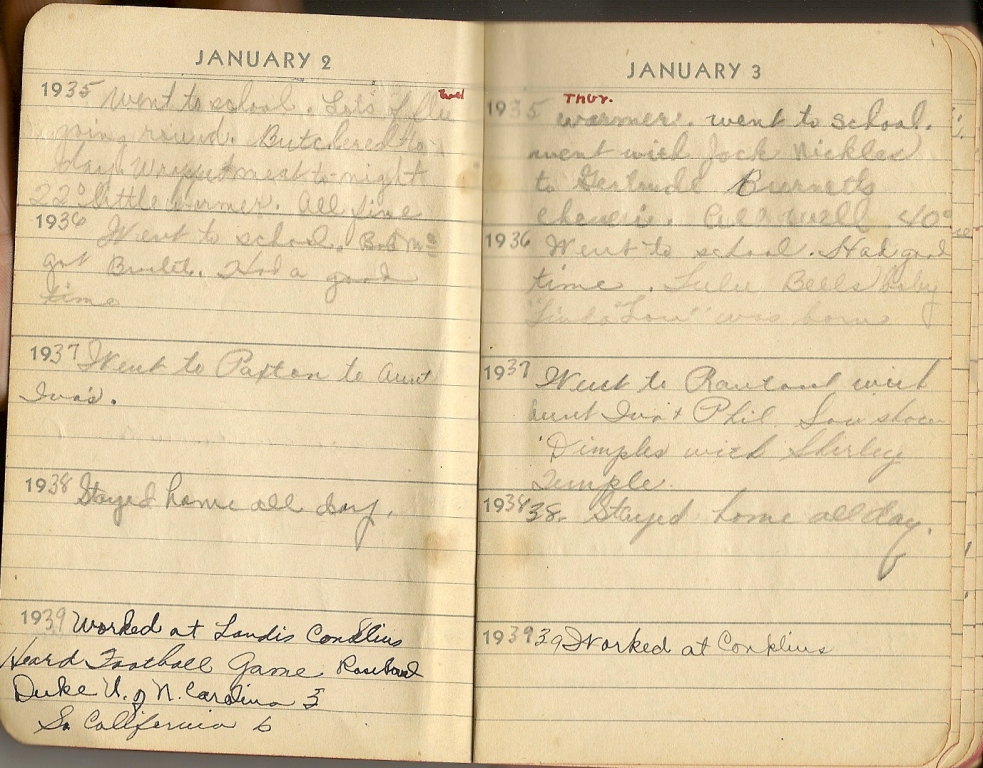 JANUARY 2
1935 Went to school. Lots of flu
going round. Butchered to
day. Wrapped meat to-night
22° little warmer. All fine
1936 Went to school.
got Built. Had a good
time
1937 Went to Paxton to Aunt
Iva's.
1938 Stayed home all day.
1939 Worked at Landis Conklins
Heard Football Game Rosebowl
Duke U. of N. Carolina 3
So California 6
JANUARY 3
Thur.
1935 warmer. went to school.
went with Jack Nickles
to Gertrude Burnetts
. All well 40°
1936 Went to school. Had good
time. Lulu Bells baby
"Linda Lou" was born
1937 Went to Rantoul with
Aunt Iva & Phil. Saw show
"Dimples with Shirley
Temple.
1938 38. Stayed home all day.
1939 39 Worked at Conklins